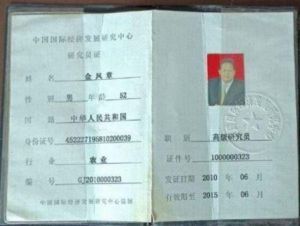 中国国际经济发展研究中心
研究员证
姓 名 金凤章
性 别 男 年龄 52
国 籍 中华人民共和国
身份证号 452227195810200039
行 业 农业
编 号 GJ2010000323
中国国际经济发展研究中心监制
职 别 高级研究员
证件号 1000000323
发证日期 2010 年 06 月
有效期至 2015 年 06 月